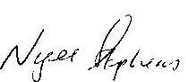 Nigel Stephens